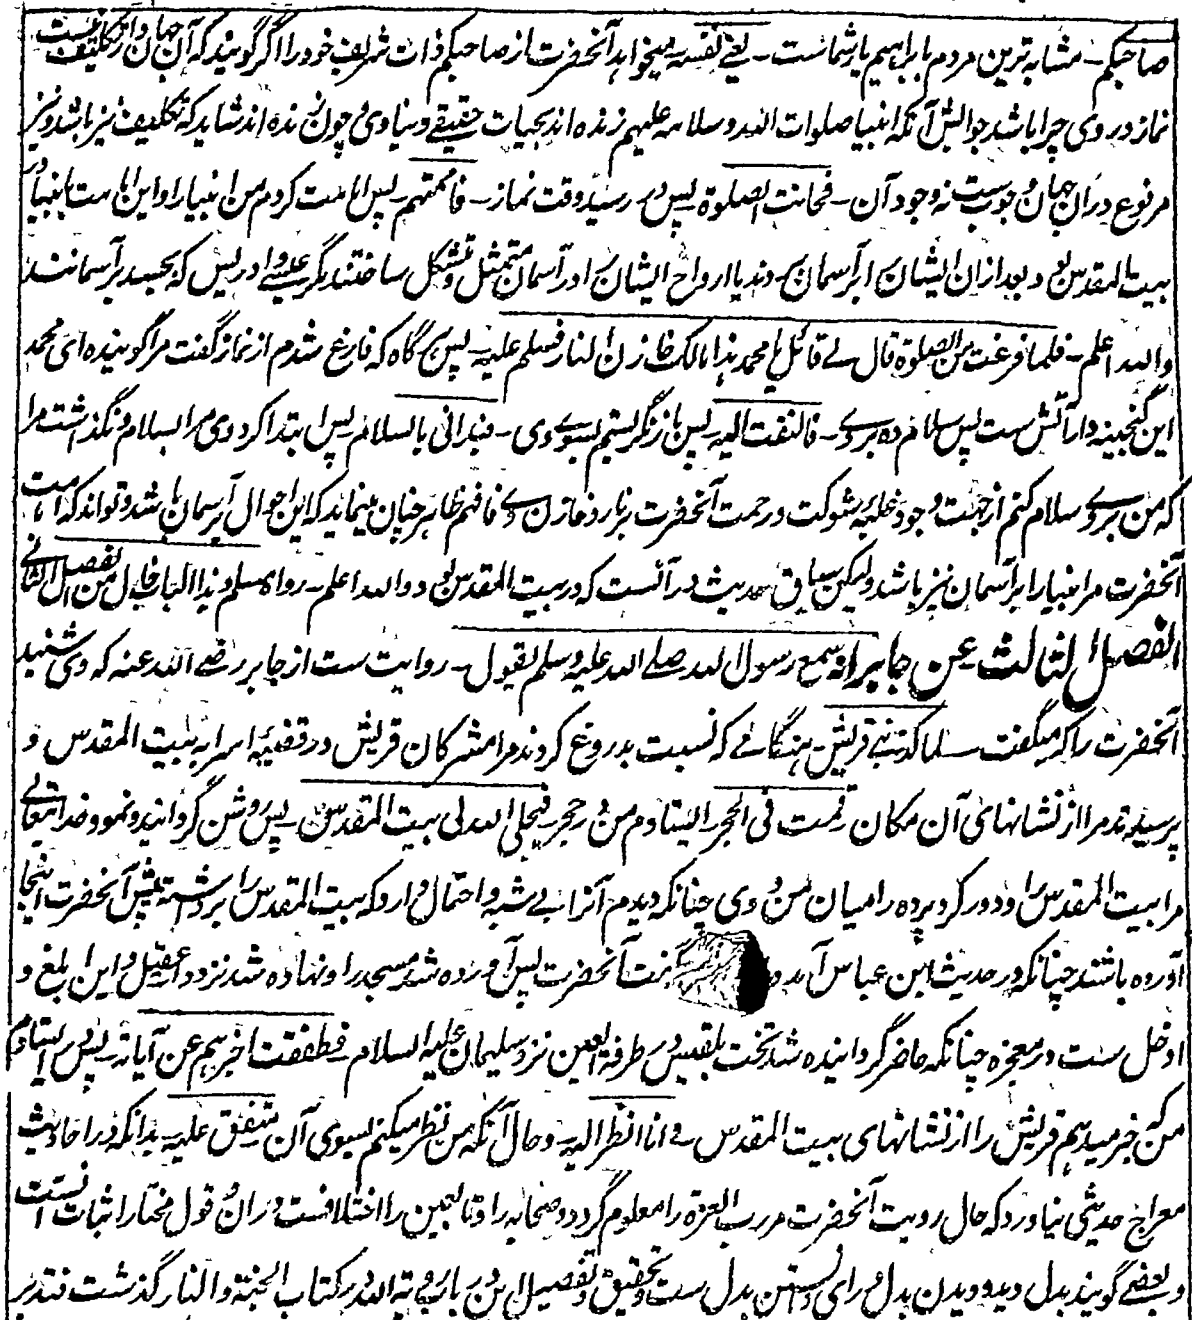 صاحبکم - مشابه ترین مردم بابراهیم یار شماست - یعنی نفسه میخواهد آنحضرت از صاحبکم ذات شریف خود را اگر گویند که آن جهان دار تکلیف نیست
نماز در وی چرا باشد جوابش آنکه انبیا صلوات الله و سلامه علیهم زنده اند بحیات حقیقی دنیاوی و چون زنده اند شاید که تکلیف نیز باشد و نیز
مرفوع در آن جهان وجوب ست نه وجود آن - فحانت الصلوة پس در رسید وقت نماز - فاممتهم پس امامت کردم من انبیا را و این امامت بانبیا در
بیت المقدس بود و بعد از آن ایشان را بر آسمان بردند یا ارواح ایشان را در آسمان متمثل و متشکل ساختند مگر عیسی و ادریس که بجسد بر آسمانند
والله اعلم - فلما فرغت من الصلوة قال لی قائل یا محمد هذا مالک خازن النار فسلم علیه - پس هر گاه که فارغ شدم از نماز گفت مرا گوینده ای محمد
این گنجینه دار آتش ست پس سلام ده بروی - فالتفت الیه پس باز نگریستم بسوی وی - فبدأنی بالسلام پس ابتدا کرد وی مرا بسلام و نگذاشت مرا
که من بروی سلام کنم از جهت وجود غلبه شوکت و رحمت آنحضرت بر نار و خازن وی فافهم ظاهر چنان مینماید که این احوال بر آسمان باشد و تواند که امامت
آنحضرت مر انبیا را بر آسمان نیز باشد ولیکن سیاق حدیث در آنست که در بیت المقدس بود والله اعلم - رواه مسلم و هذا الباب خال من الفصل الثانی
الفصل الثالث عن جابر انه سمع رسول الله صلی الله علیه وسلم یقول - روایت ست از جابر رضی الله عنه که وی شنید
آنحضرت را که میگفت لما کذبنی قریش هنگامی که نسبت بدروغ کردند مرا مشرکان قریش در قضیه اسرا به بیت المقدس و
پرسیدند مرا از نشانهای آن مکان قمت فی الحجر ایستادم من در حجر فجلی الله لی بیت المقدس - پس روشن گردانید و نمود خدا تعالی
مرا بیت المقدس را و دور کرد پرده را میان من و وی چنانکه دیدم آنرا بی شبه و احتمال دارد که بیت المقدس را برداشته پیش آنحضرت اینجا
آورده باشند چنانکه در حدیث ابن عباس آمده گفت آنحضرت پس آورده شد مسجد را و نهاده شد نزد دار عقیل و این ابلغ و
ادخل ست در معجزه چنانکه حاضر گردانیده شد تخت بلقیس در طرفة العین نزد سلیمان علیه السلام - فطفقت اخبرهم عن آیاته - پس در ایستادم
من که خبر میدهم قریش را از نشانهای بیت المقدس - و انا انظر الیه و حال آنکه من نظر میکنم بسوی آن متفق علیه - بدانکه در احادیث
معراج حدیثی نیاورد که حال رویت آنحضرت مر رب العزة را معلوم گردد و صحابه را و تابعین را اختلافست در آن و قول مختار اثبات آنست
و بعضی گویند بدل دید و دیدن بدل ورای دانستن بدل ست و تحقیق و تفصیل این در باب رویة الله در کتاب الجنة والنار گذشت فتدبر